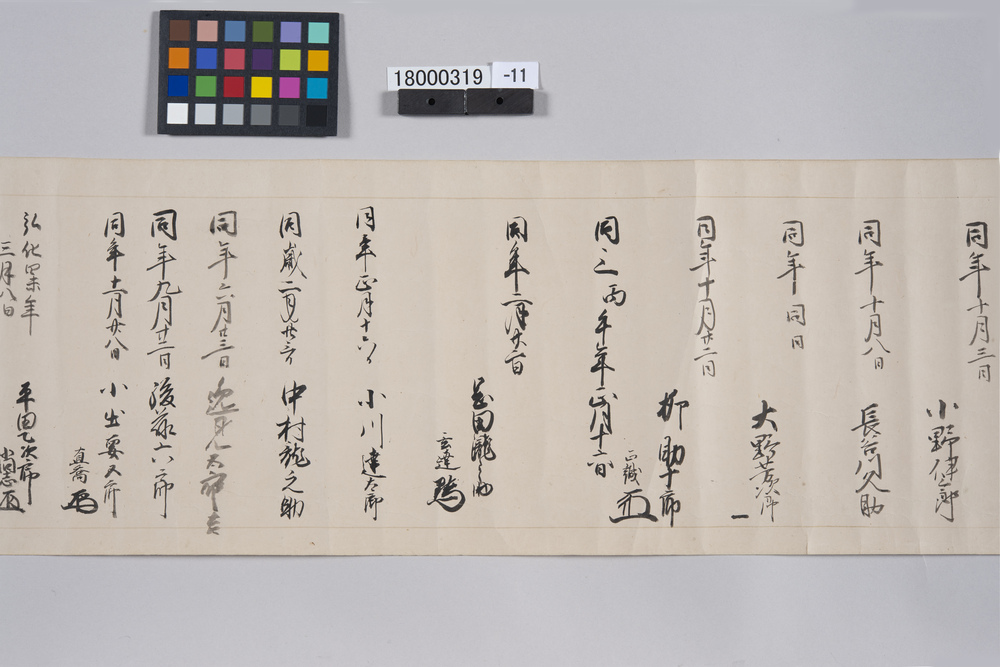 18000319 -11
同年十月三日
小野伊三郎
同年十月八日
長谷川久助
同年同日
大野 次郎
同年十月廿二日
柳助十郎
同三丙午年正月十六日
正
同年二月廿六日
岩田 之助
玄達
同年正月十六日
小川達太郎
同歳二月廿三日
中村龍之助
同年六月廿三日
太郎
同年九月廿二日
後藤六郎
同年十一月廿八日
小出要五郎
直喬
弘化四 年
三月八日
平田乙次郎
尚志